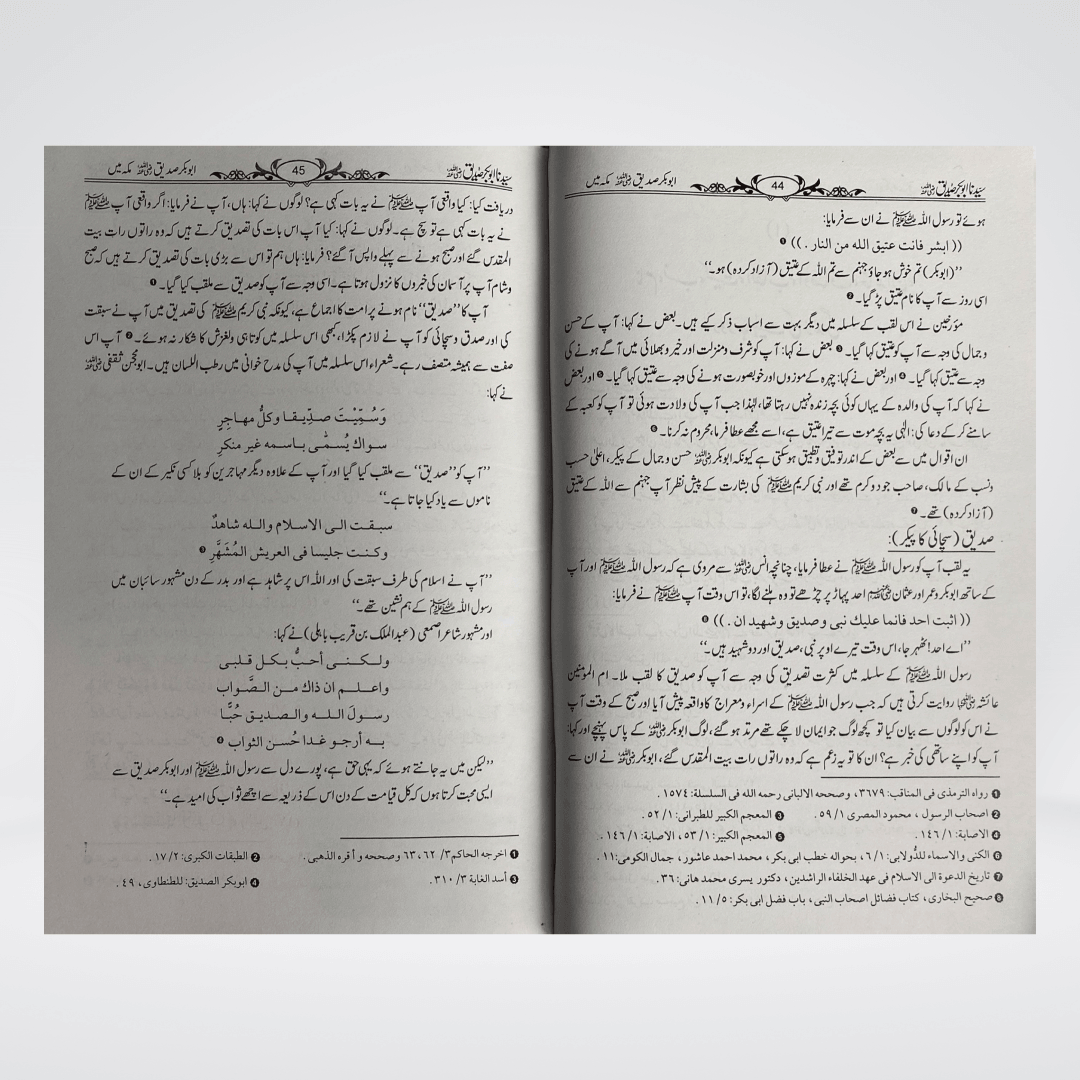 سیدنا ابوبکر صدیق رضی اللہ عنہ 44 ابوبکر صدیق رضی اللہ عنہ مکہ میں
ہوئے تو رسول اللہ ﷺ نے ان سے فرمایا:
(( ابشر فانت عتیق الله من النار . )) ❶
’’(ابوبکر) تم خوش ہو جاؤ جہنم سے تم اللہ کے عتیق (آزاد کردہ) ہو۔‘‘
اسی روز سے آپ کا نام عتیق پڑ گیا۔ ❷
مؤرخین نے اس لقب کے سلسلہ میں دیگر بہت سے اسباب ذکر کیے ہیں۔ بعض نے کہا: آپ کے حسن
و جمال کی وجہ سے آپ کو عتیق کہا گیا۔ ❸ بعض نے کہا: آپ کو شرف و منزلت اور خیر و بھلائی میں آگے ہونے کی
وجہ سے عتیق کہا گیا۔ ❹ اور بعض نے کہا: چہرہ کے موزوں اور خوبصورت ہونے کی وجہ سے عتیق کہا گیا۔ ❺ اور بعض
نے کہا کہ آپ کی والدہ کے یہاں کوئی بچہ زندہ نہیں رہتا تھا، لہٰذا جب آپ کی ولادت ہوئی تو آپ کو کعبہ کے
سامنے کر کے دعا کی: الٰہی یہ بچہ موت سے تیرا عتیق ہے، اسے مجھے عطا فرما، محروم نہ کرنا۔ ❻
ان اقوال میں سے بعض کے اندر توفیق و تطبیق ہو سکتی ہے کیونکہ ابوبکر رضی اللہ عنہ حسن و جمال کے پیکر، اعلیٰ حسب
و نسب کے مالک، صاحب جود و کرم تھے اور نبی کریم ﷺ کی بشارت کے پیش نظر آپ جہنم سے اللہ کے عتیق
(آزاد کردہ) تھے۔ ❼
صدیق (سچائی کا پیکر):
یہ لقب آپ کو رسول اللہ ﷺ نے عطا فرمایا، چنانچہ انس رضی اللہ عنہ سے مروی ہے کہ رسول اللہ ﷺ اور آپ
کے ساتھ ابوبکر و عمر اور عثمان رضی اللہ عنہم احد پہاڑ پر چڑھے تو وہ ہلنے لگا، تو اس وقت آپ ﷺ نے فرمایا:
(( اثبت احد فانما علیك نبی وصدیق وشهید ان . )) ❽
’’اے احد! ٹھہر جا، اس وقت تیرے اوپر نبی، صدیق اور دو شہید ہیں۔‘‘
رسول اللہ ﷺ کے سلسلہ میں کثرت تصدیق کی وجہ سے آپ کو صدیق کا لقب ملا۔ ام المومنین
عائشہ رضی اللہ عنہا روایت کرتی ہیں کہ جب رسول اللہ ﷺ کے اسراء و معراج کا واقعہ پیش آیا اور صبح کے وقت آپ
نے اس کو لوگوں سے بیان کیا تو کچھ لوگ جو ایمان لا چکے تھے مرتد ہو گئے، لوگ ابوبکر رضی اللہ عنہ کے پاس پہنچے اور کہا:
آپ کو اپنے ساتھی کی خبر ہے؟ ان کا تو یہ زعم ہے کہ وہ راتوں رات بیت المقدس گئے، ابوبکر رضی اللہ عنہ نے ان سے
❶ رواه الترمذی فی المناقب: ۳۶۷۹، وصححه الالبانی رحمه الله فی السلسلة: ۱۵۷۴ .
❷ اصحاب الرسول ، محمود المصری ۱/ ۵۹ . ❸ المعجم الکبیر للطبرانی: ۱/ ۵۲ .
❹ الاصابة: ۱/ ۱۴۶ . ❺ المعجم الکبیر: ۱/ ۵۳، الاصابة: ۱/ ۱۴۶ .
❻ الکنی والاسماء للدُّولابی: ۱/ ۶، بحواله خطب ابی بکر ، محمد احمد عاشور، جمال الکومی: ۱۱ .
❼ تاریخ الدعوة الی الاسلام فی عهد الخلفاء الراشدین، دکتور یسری محمد هانی: ۳۶ .
❽ صحیح البخاری، کتاب فضائل اصحاب النبی، باب فضل ابی بکر: ۵/ ۱۱ .
سیدنا ابوبکر صدیق رضی اللہ عنہ 45 ابوبکر صدیق رضی اللہ عنہ مکہ میں
دریافت کیا: کیا واقعی آپ ﷺ نے یہ بات کہی ہے؟ لوگوں نے کہا: ہاں، آپ نے فرمایا: اگر واقعی آپ ﷺ
نے یہ بات کہی ہے تو سچ ہے۔ لوگوں نے کہا: کیا آپ اس بات کی تصدیق کرتے ہیں کہ وہ راتوں رات بیت
المقدس گئے اور صبح ہونے سے پہلے واپس آ گئے؟ فرمایا: ہاں ہم تو اس سے بڑی بات کی تصدیق کرتے ہیں کہ صبح
و شام آپ پر آسمان کی خبروں کا نزول ہوتا ہے۔ اسی وجہ سے آپ کو صدیق سے ملقب کیا گیا۔ ❶
آپ کا ’’صدیق‘‘ نام ہونے پر امت کا اجماع ہے، کیونکہ نبی کریم ﷺ کی تصدیق میں آپ نے سبقت
کی اور صدق و سچائی کو آپ نے لازم پکڑا، کبھی اس سلسلہ میں کوتاہی و لغزش کا شکار نہ ہوئے۔ ❷ آپ اس
صفت سے ہمیشہ متصف رہے۔ شعراء اس سلسلہ میں آپ کی مدح خوانی میں رطب اللسان ہیں۔ ابو محجن ثقفی رضی اللہ عنہ
نے کہا:
وَسُمِّیْتَ صدِّیقا وکلُّ مهاجرٍ
سواك یُسمّٰی باسمه غیر منکرِ
’’آپ کو ’’صدیق‘‘ سے ملقب کیا گیا اور آپ کے علاوہ دیگر مہاجرین کو بلا کسی نکیر کے ان کے
ناموں سے یاد کیا جاتا ہے۔‘‘
سبقت الی الاسلام والله شاهدٌ
وکنت جلیسا فی العریش المُشَهَّرِ ❸
’’آپ نے اسلام کی طرف سبقت کی اور اللہ اس پر شاہد ہے اور بدر کے دن مشہور سائبان میں
رسول اللہ ﷺ کے ہم نشین تھے۔‘‘
اور مشہور شاعر اصمعی (عبدالملک بن قریب باہلی) نے کہا:
ولکنی أحبُّ بکل قلبی
واعلم ان ذاك من الصَّواب
رسولَ الله والصدیق حُبًّا
به أرجو غدا حُسن الثواب ❹
’’لیکن میں یہ جانتے ہوئے کہ یہی حق ہے، پورے دل سے رسول اللہ ﷺ اور ابوبکر صدیق سے
ایسی محبت کرتا ہوں کہ کل قیامت کے دن اس کے ذریعہ سے اچھے ثواب کی امید ہے۔‘‘
❶ اخرجه الحاکم ۳/ ۶۲، ۶۳ وصححه و أقره الذهبی . ❷ الطبقات الکبری: ۲/ ۱۷ .
❸ أسد الغابة ۳/ ۳۱۰ . ❹ ابوبکر الصدیق: للطنطاوی، ۴۹ .